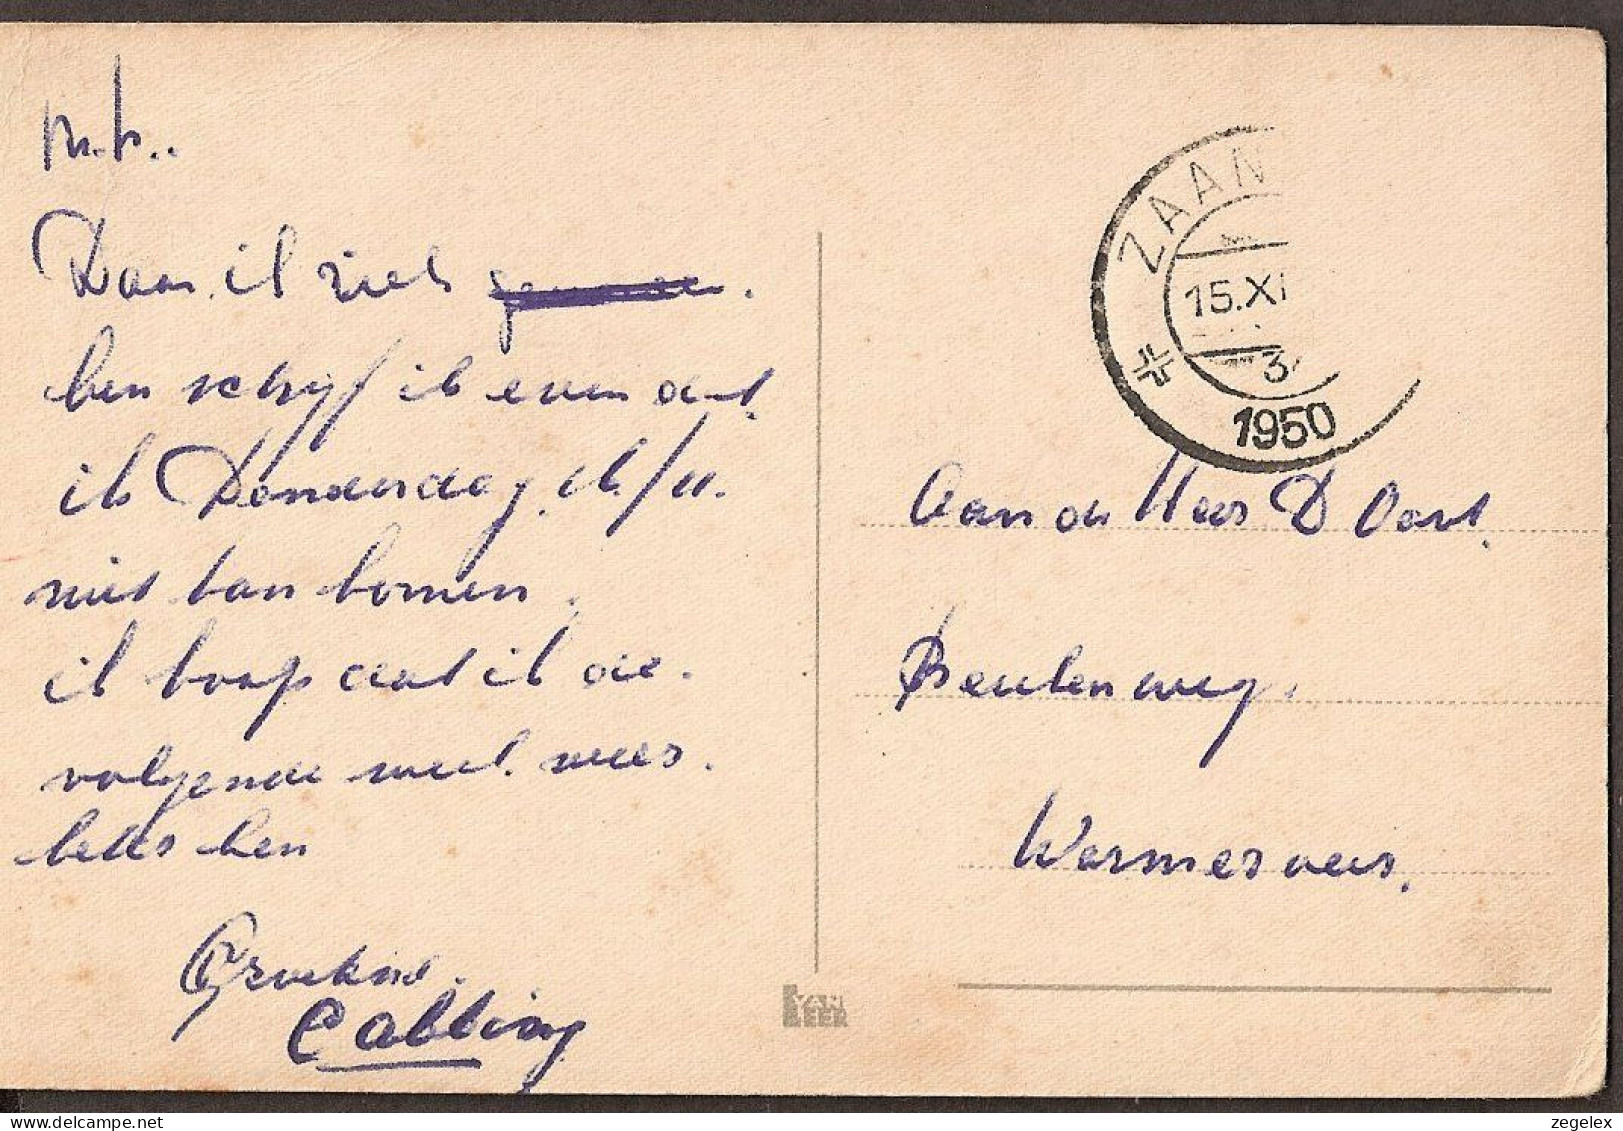 M.H..
Daar ik ziek
ben schrijf ik even dat.
ik Donderdag 16/11.
niet kan komen.
ik hoop dat ik de.
volgende week weer.
beter ben
Groetend.
C abbing
ZAAN
15.XI
3.
1950
Aan de Heer D Oort.
Beukenweg.
Wormerveer.
VAN
LEER
zegelex